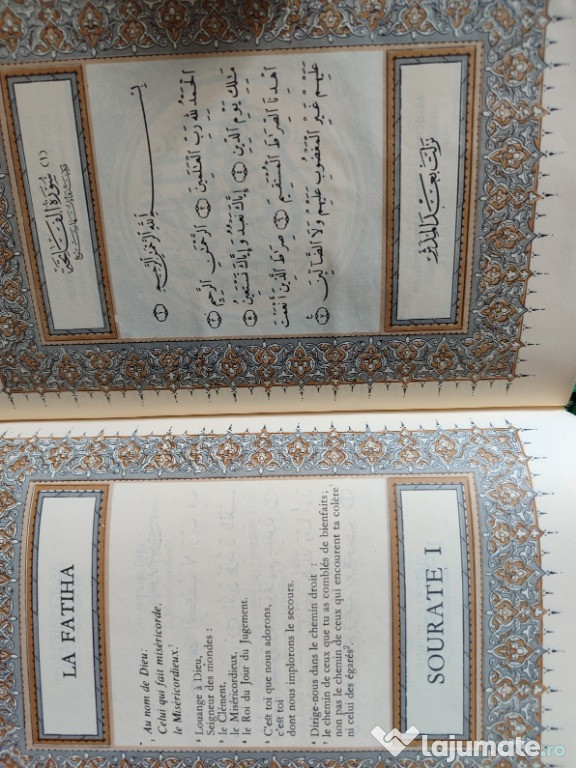 LA FATIHA
¹ Au nom de Dieu:
Celui qui fait miséricorde,
le Miséricordieux.
² Louange à Dieu,
Seigneur des mondes :
³ le Clément,
le Miséricordieux,
⁴ le Roi du Jour du Jugement.
⁵ C'est toi que nous adorons,
c'est toi
dont nous implorons le secours.
⁶ Dirige-nous dans le chemin droit :
⁷ le chemin de ceux que tu as comblés de bienfaits;
non pas le chemin de ceux qui encourent ta colère¹
ni celui des égarés².
SOURATE I
(١) سُورَةُ الْفَاتِحَةِ
بِسْمِ اللَّهِ الرَّحْمَٰنِ الرَّحِيمِ ١
الْحَمْدُ لِلَّهِ رَبِّ الْعَالَمِينَ ٢ الرَّحْمَٰنِ الرَّحِيمِ ٣
مَالِكِ يَوْمِ الدِّينِ ٤ إِيَّاكَ نَعْبُدُ وَإِيَّاكَ نَسْتَعِينُ ٥
اهْدِنَا الصِّرَاطَ الْمُسْتَقِيمَ ٦ صِرَاطَ الَّذِينَ أَنْعَمْتَ
عَلَيْهِمْ غَيْرِ الْمَغْضُوبِ عَلَيْهِمْ وَلَا الضَّالِّينَ ٧
نَزَلَتْ بَعْدَ الْمُدَّثِّرِ
lajumate.ro